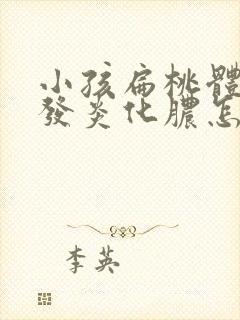 小孩扁桃體
發炎化膿怎
李英